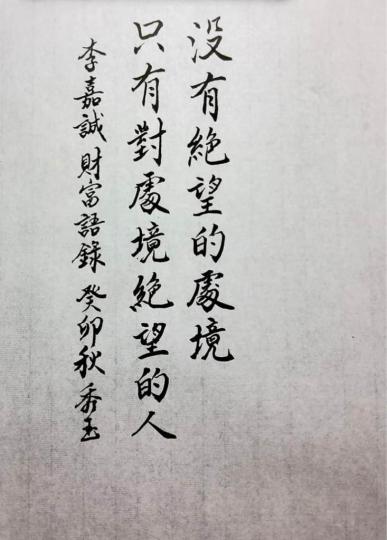 没有絕望的處境
只有對處境絕望的人
李嘉誠財富語錄 癸卯秋秀玉